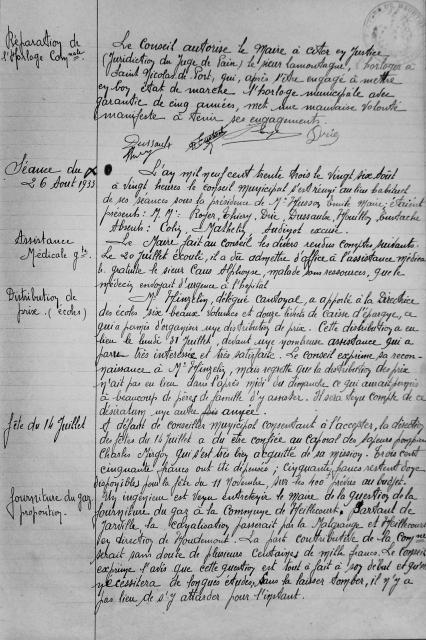 Réparation de
l'Horloge Com^nale
Le Conseil autorise le Maire à citer en Justice
(Juridiction du Juge de Paix) le sieur Lamontagne, horloger à
Saint Nicolas de Port, qui, après s'être engagé à mettre
en bon état de marche l'horloge municipale avec
garantie de cinq années, met une mauvaise volonté
manifeste à tenir ses engagements.
Dussaulx
Séance du
26 Août 1933
L'an mil neuf cent trente trois le vingt six août
à vingt heures le conseil municipal s'est réuni au lieu habituel
de ses séances sous la présidence de M^r Husson Emile Maire; étaient
présents: M.M. Royer, Thiéry, Dussaulx, Houillon, Eustache
Absents: Colin, Mathelin, Audinot excusé.
Assistance
Médicale g^te
Le Maire fait au Conseil les divers rendus comptes suivants.
Le 20 Juillet écoulé, il a dû admettre d'office à l'assistance médicale
gratuite le sieur Caus Alphonse, malade sans ressources, que le
médecin envoyait d'urgence à l'hôpital
Distribution de
prix. (écoles)
M^r Hinzelin, délégué cantonal, a apporté à la Directrice
des écoles six beaux volumes et douze livrets de caisse d'épargne, ce
qui a permis d'organiser une distribution de prix. Cette distribution a eu
lieu le lundi 31 Juillet, devant une nombreuse assistance qui a
paru très intéressée et très satisfaite. Le conseil exprime sa recon-
naissance à M^r Hinzelin, mais regrette que la distribution des prix
n'ait pas eu lieu dans l'après midi du dimanche ce qui aurait permis
à beaucoup de pères de famille d'y assister. Il sera tenu compte de ce
désidératum une autre année.
fête du 14 Juillet
A défaut de conseiller municipal consentant à l'accepter, la direction
des fêtes du 14 Juillet a dû être confiée au caporal des Sapeurs pompiers
Charles Margot qui s'est très bien acquitté de sa mission. Trois cent
cinquante francs ont été dépensés; cinquante francs restent donc
disponibles pour la fête du 11 Novembre, sur les 400 prévus au budget.
Fourniture du gaz
proposition.
Un ingénieur est venu entretenir le maire de la question de la
fourniture du gaz à la Commune de Heillecourt. Partant de
Jarville la canalisation passerait par la Malgrange et Heillecourt
en direction de Houdemont. La part contributive de la Com^ne
serait sans doute de plusieurs centaines de mille francs. Le Conseil
exprime l'avis que cette question est tout à fait à son début et qu'elle
nécessitera de longues études, sans la laisser tomber, il n'y a
pas lieu de s'y attarder pour l'instant.